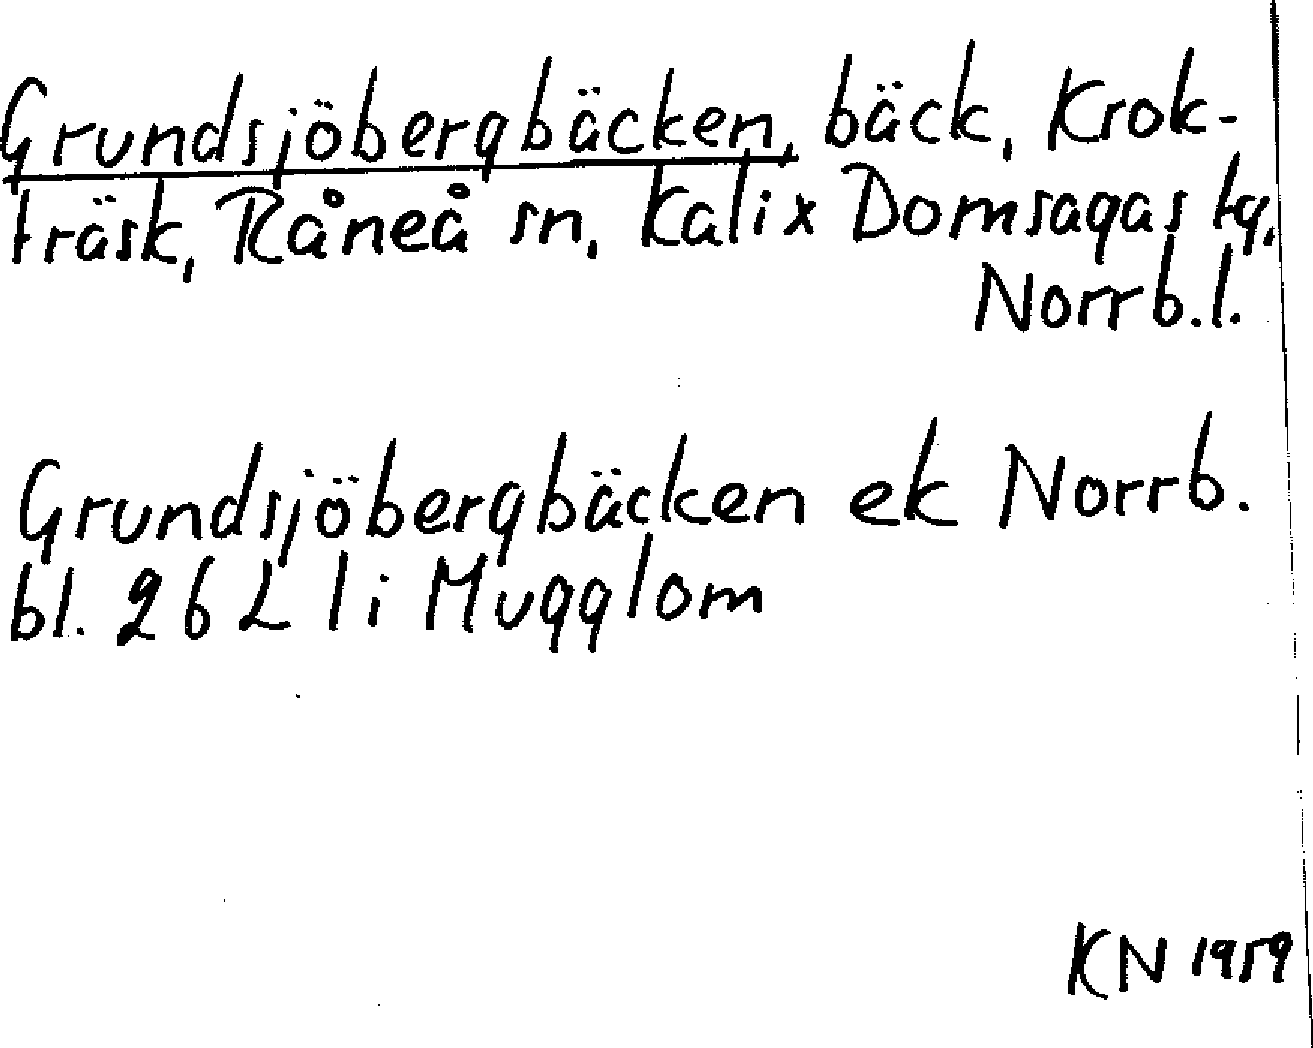 Grundsjöbergbäcken, bäck, Krok-
träsk, Råneå sn, Kalix Domsagas tg,
Norrb.l.
Grundsjöbergbäcken ek Norrb.
bl. 26 L li Mugglom
KN 1959